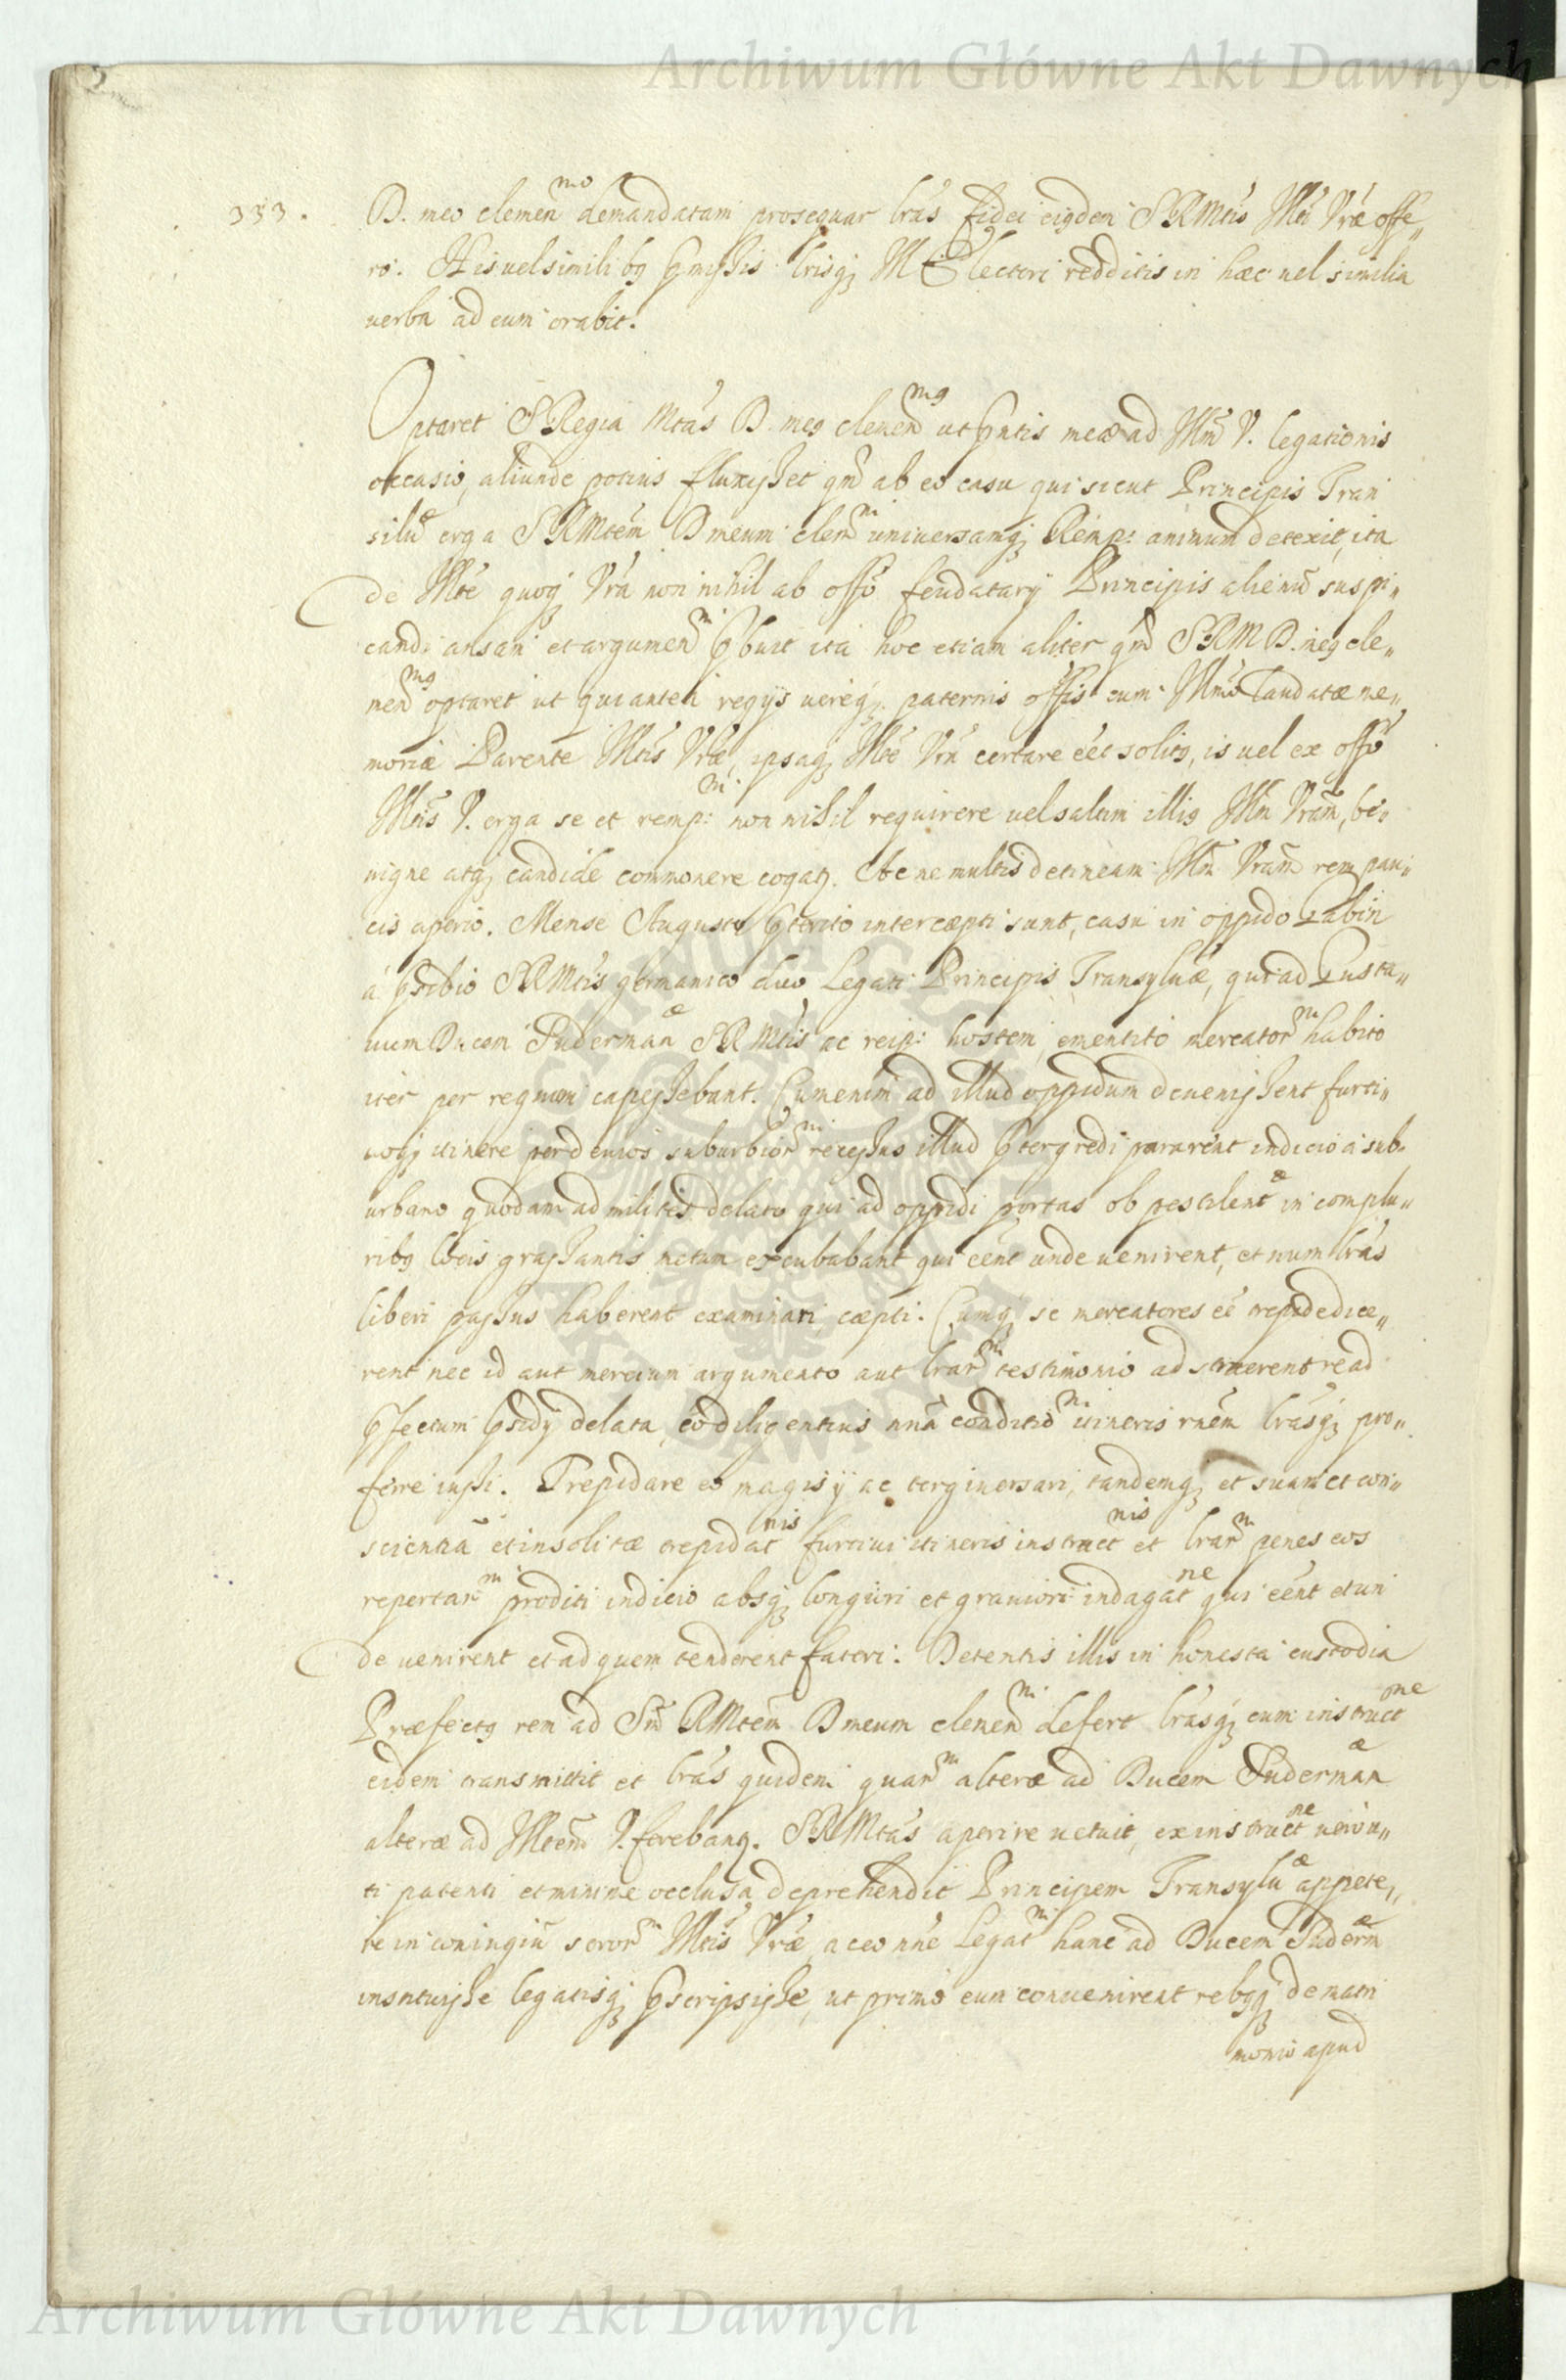 Archiwum Główne Akt Dawnych
333.
D. meo clemen̄mo demandatam prosequar lrás fidei eigdem SRMtis Mti Vrǽ offe„
ro. His uel similibg pmissis lrisq; M Electori redditis in hæc uel similia
uerba ad eum orabit.
Optaret SRegia Mtas D. meg clemen̄mg ut pntis meæ ad Mtm V. legationis
occasio, aliunde potius fluxisset qm̄ ab eo casu qui sicut Principis Tran
siluæ erga SRMtem D meum clem̄m uniuersamq; Remp: animum detexit, ita
de Mte quoq; Vrá non nihil ab offo feudatarij Principis alienū suspi„
candi ansam et argumen̄m pbuit ita hoc etiam aliter qm̄ SRM D. meg cle„
men̄mg optaret ut qui antea regijs uereq; paternis offis cum Mmo Laudatæ me„
moriæ Parente Mtis Vræ, ipsaq; Mte Vrá certare eét solitg, is uel ex offo
Mtis V. erga se et remp: non nihil requirere uel saltim illig Mtm Vram̄, be„
nigne atq; candide commonere cogatr. Ac ne multis detineam Mtm̄ Vram̄ rem pau„
cis aperio. Mense Augusto pterito intercæpti sunt, casu in oppido Labin
á psidio SRMtis germanico duo Legati Principis Transyluæ, qui ad Gusta„
uum Ducem Sudermanæ SRMtis ac reip: hostem, ementito mercatorm habito
iter per regnum capessebant. Cum enim ad illud oppidum deuenissent furti„
uoq; itinere per deuios suburbiorm recessus illud ptergredi pararent indicio á sub„
urbano quodam ad milites delato qui ad oppidi portas ob pestilentæ in complu„
ribg locis grassantis metum excubabant qui eént unde uenirent, et num lrás
liberi passus haberent examinari cæpti. Cumq; se mercatores eé trepide dice„
rent nec id aut mercium argumento aut lrarm testimonio adstruerent re ad
pfectum psidij delata, eo diligentius uná conditiom itineris rném lrásq; pro„
ferre iussi. Trepidare eo magis ij ac tergiuersari, tandemq; et suamet con„
scientiā et insolitæ trepidatnis furtiui itineris instructnis et lrarm penes eos
repertarm proditi indicio absq; longiori et grauiori indagatne qui eént et un
de uenirent et ad quem tenderent fateri. Detentis illis in honesta custodia
Præfectg rem ad Sm̄ RMtem D meum clemen̄m defert lrásq; cum instructne
eidem transmittit et lrás quidem quarm alteræ ad Ducem Sudermanæ
alteræ ad Mtem V. ferebantr. SRMtas aperire uetuit, ex instructne uero u„
ti patenti et minime occlusa deprehendit Principem Transyluæ appete„
re in coniugiū sororm Mtis Vræ, ac eo nne Legatm hanc ad Ducem Sudermæ
instituisse legatisq; pscripsisse, ut primo eum conuenirent rebgq; de matri
monio apud
Archiwum Główne Akt Dawnych